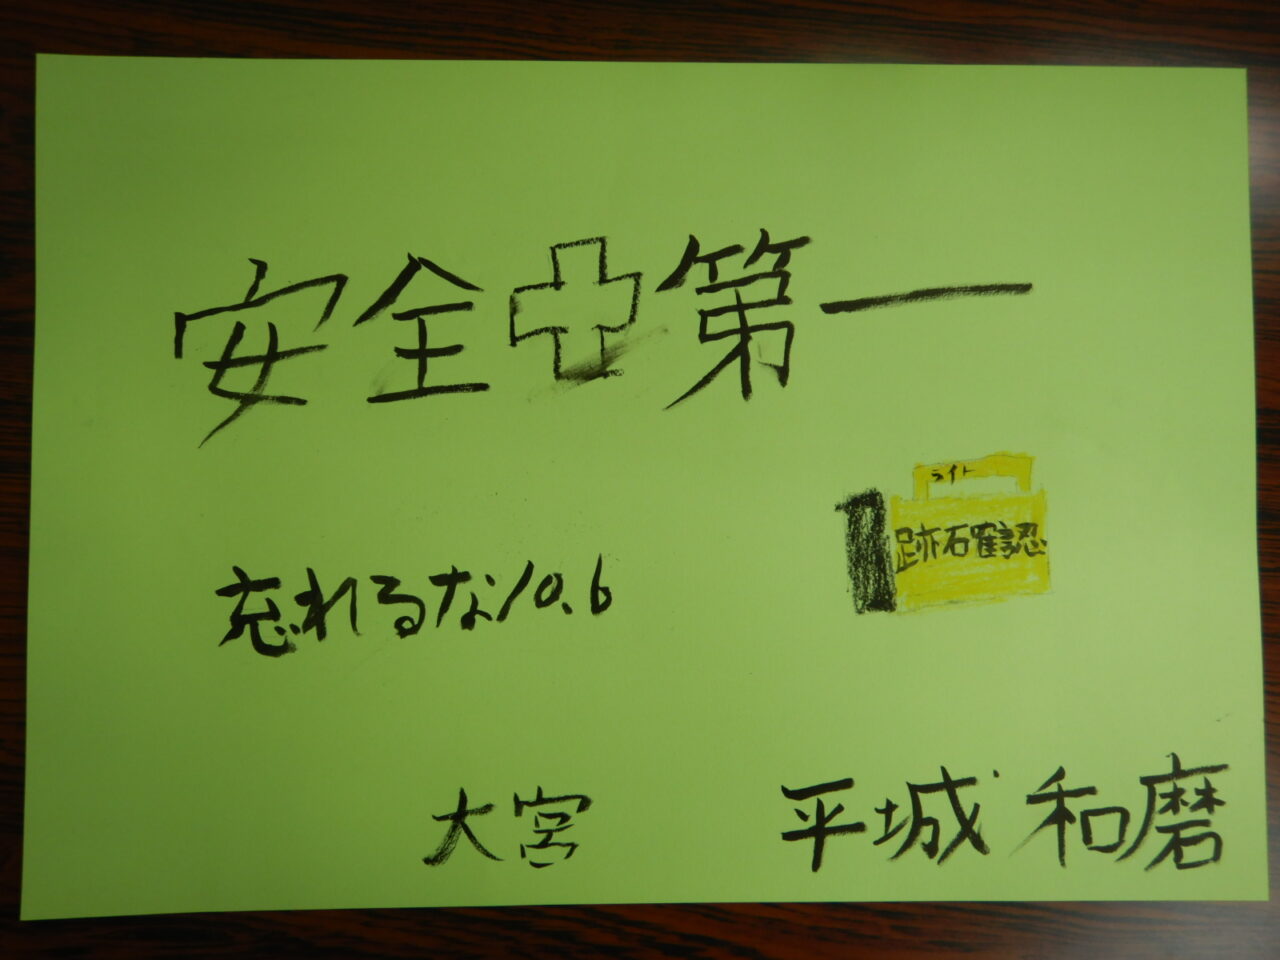 安全第一
ライト
跡石確認
忘れるな10.6
大宮 平城 和磨